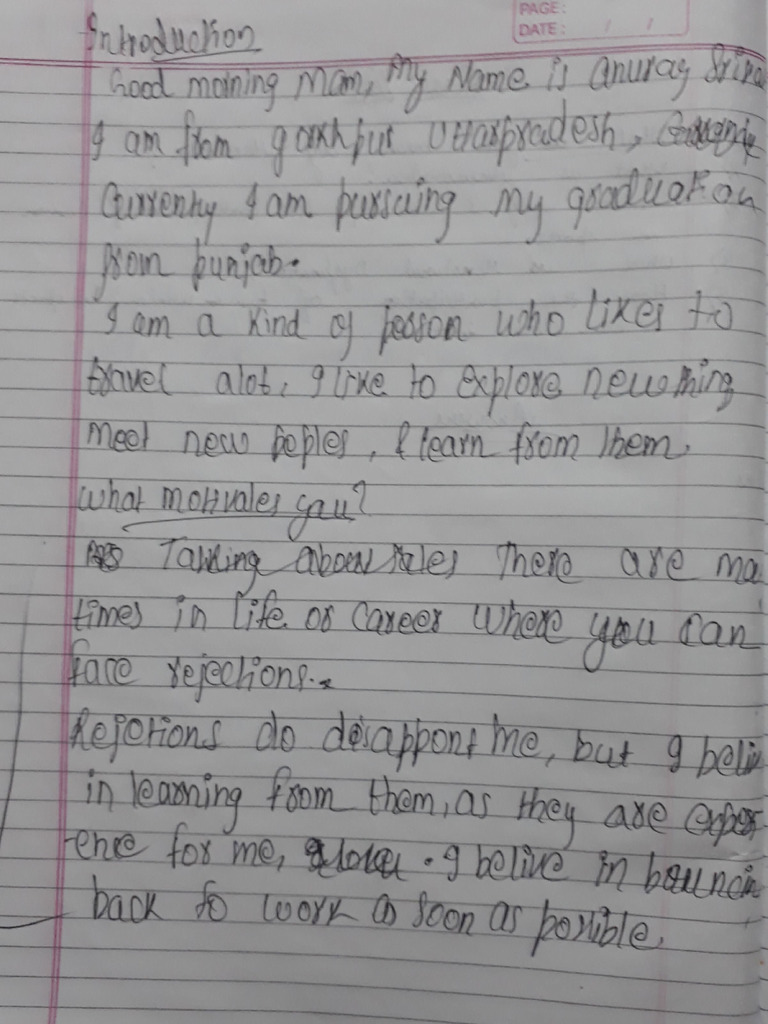 PAGE:
DATE: / /
Introduction
Good morning Mam, My Name is anurag
I am from gorkhpur Uttarpradesh,
Currenty I am pursuing my graduation
from punjab.
I am a kind of person who likes to
travel alot, I like to explore new thing
meet new peples, & learn from them.
what motivates you?
Talking about there are
times in life or career where you can
face rejections.
Rejetions do disappont me, but I
in learning from them, as they are exper
-ence for me, . I belive in
back to work as soon as possible.